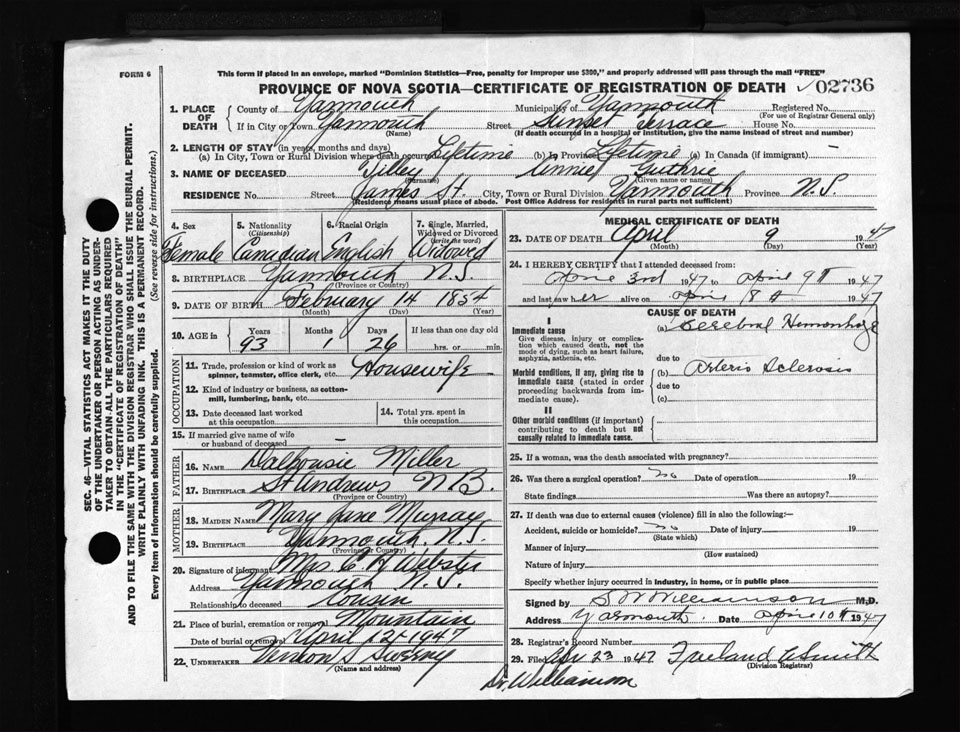 FORM 6
This form if placed in an envelope, marked "Dominion Statistics—Free, penalty for improper use $300," and properly addressed will pass through the mail "FREE"
PROVINCE OF NOVA SCOTIA—CERTIFICATE OF REGISTRATION OF DEATH 02736
1. PLACE OF DEATH County of Yarmouth Municipality of Yarmouth Registered No.
(For use of Registrar General only)
If in City or Town Yarmouth Street Sunset Terrace House No.
(Name) (If death occurred in a hospital or institution, give the name instead of street and number)
2. LENGTH OF STAY (in years, months and days)
(a) In City, Town or Rural Division where death occurred Lifetime (b) in Province Lifetime (c) In Canada (if immigrant) —
3. NAME OF DECEASED Tilley Annie Guthrie
(Surname) (Given name or names)
RESIDENCE No. Street James St. City, Town or Rural Division Yarmouth Province N.S.
(Residence means usual place of abode. Post Office Address for residents in rural parts not sufficient)
4. Sex 5. Nationality 6. Racial Origin 7. Single, Married, Widowed or Divorced
(Citizenship) (write the word)
Female Canadian English Widowed
8. BIRTHPLACE Yarmouth N.S.
(Province or Country)
9. DATE OF BIRTH February 14 1854
(Month) (Day) (Year)
10. AGE in Years Months Days If less than one day old
93 1 26 hrs. or min.
OCCUPATION
11. Trade, profession or kind of work as spinner, teamster, office clerk, etc. Housewife
12. Kind of industry or business, as cotton-mill, lumbering, bank, etc.
13. Date deceased last worked at this occupation
14. Total yrs. spent in this occupation
15. If married give name of wife or husband of deceased —
FATHER
16. NAME Dalhousie Miller
17. BIRTHPLACE St Andrews N.B.
(Province or Country)
MOTHER
18. MAIDEN NAME Mary Jane Murray
19. BIRTHPLACE Yarmouth. N.S.
(Province or Country)
20. Signature of informant Mrs. C H Webster
Address Yarmouth N.S.
Relationship to deceased Cousin
21. Place of burial, cremation or removal Mountain
Date of burial or removal April 12 1947
22. UNDERTAKER Vernon S Sweeny
MEDICAL CERTIFICATE OF DEATH
23. DATE OF DEATH April 9 1947
(Month) (Day) (Year)
24. I HEREBY CERTIFY that I attended deceased from:
April 3rd 1947 to April 9th 1947
and last saw her alive on April 8th 1947
CAUSE OF DEATH
I
Immediate cause (a) Cerebral Hemorrhage
Give disease, injury or complication which caused death, not the mode of dying, such as heart failure, asphyxia, asthenia, etc.
due to
Morbid conditions, if any, giving rise to immediate cause (stated in order proceeding backwards from immediate cause).
(b) Arterio Sclerosis
due to
(c)
II
Other morbid conditions (if important) contributing to death but not causally related to immediate cause.
25. If a woman, was the death associated with pregnancy?
26. Was there a surgical operation? no Date of operation 19
State findings Was there an autopsy?
27. If death was due to external causes (violence) fill in also the following:—
Accident, suicide or homicide? no Date of injury 19
(State which)
Manner of injury
(How sustained)
Nature of injury
Specify whether injury occurred in industry, in home, or in public place
Signed by S W Williamson M.D.
Address Yarmouth. Date April 10th 1947
28. Registrar's Record Number
29. Filed Apr 23 1947 Freeland E Smith
(Division Registrar)
Dr. Williamson
SEC. 46—VITAL STATISTICS ACT MAKES IT THE DUTY
OF THE UNDERTAKER OR PERSON ACTING AS UNDER-
TAKER TO OBTAIN ALL THE PARTICULARS REQUIRED
IN THE "CERTIFICATE OF REGISTRATION OF DEATH"
AND TO FILE THE SAME WITH THE DIVISION REGISTRAR WHO SHALL ISSUE THE BURIAL PERMIT.
WRITE PLAINLY WITH UNFADING INK. THIS IS A PERMANENT RECORD.
Every item of information should be carefully supplied. (See reverse side for instructions.)